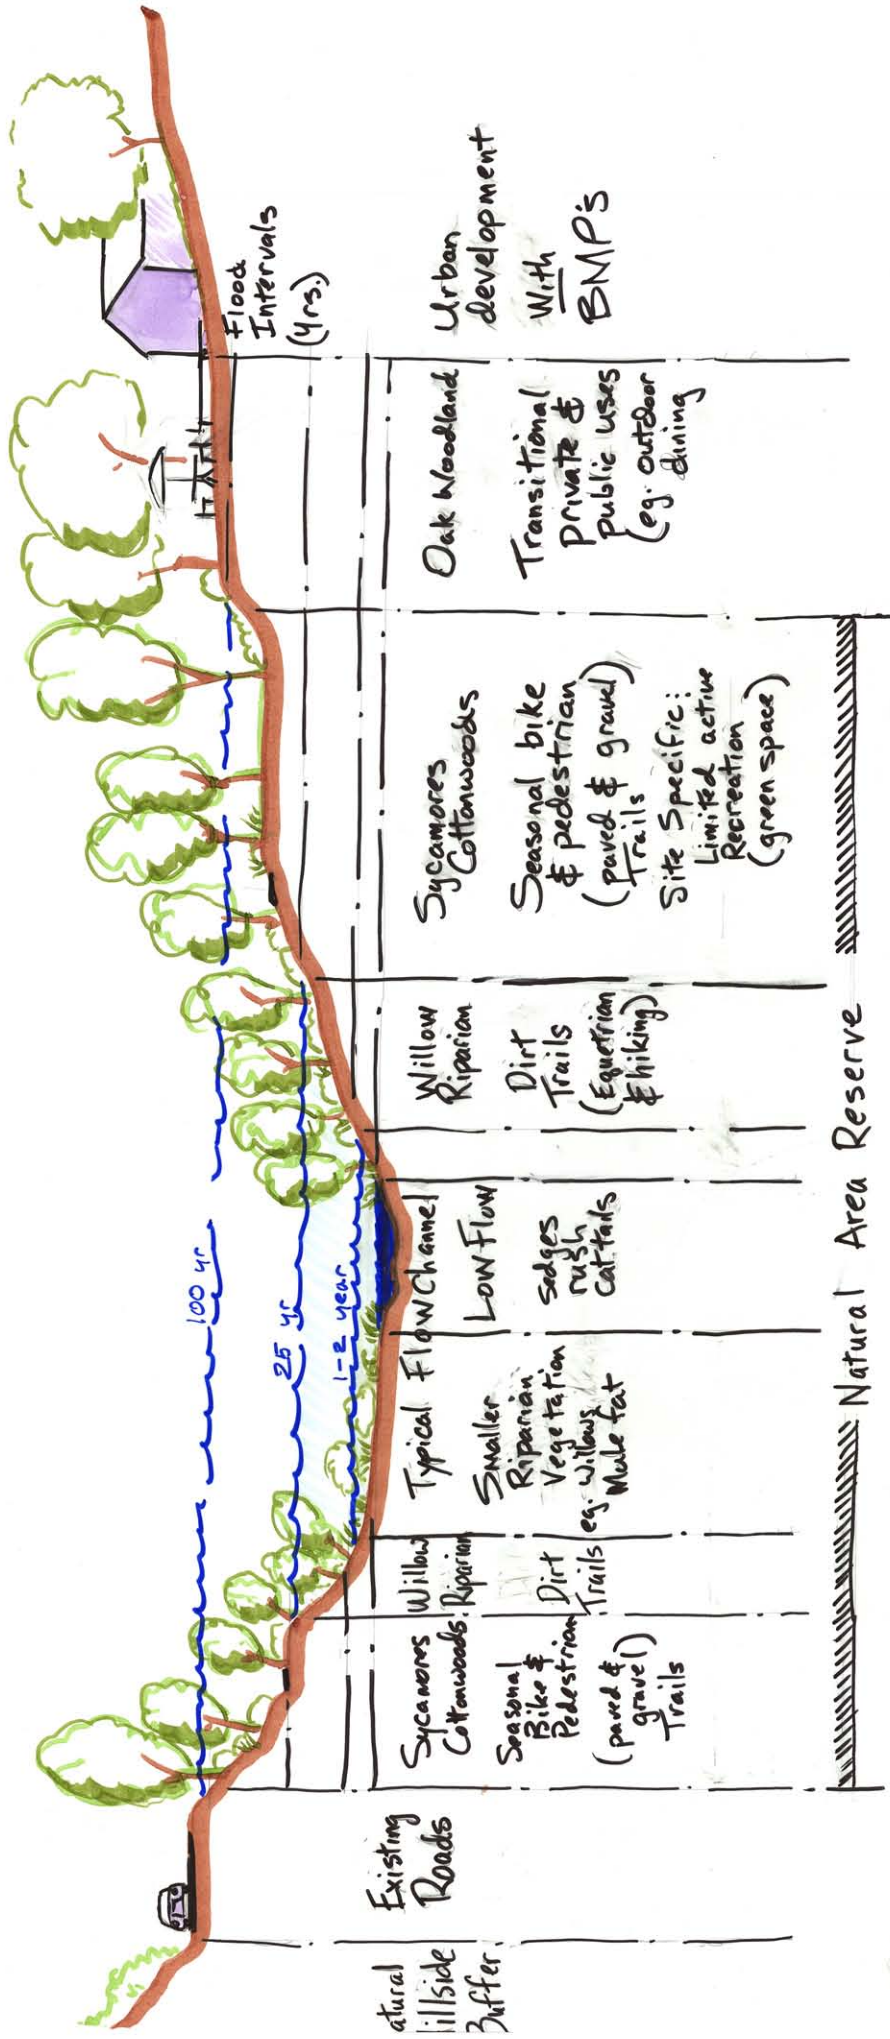 100 yr
25 yr
1-2 year
Flood
Intervals
(yrs.)
atural
illside
Buffer
Existing
Roads
Sycamores
Cottonwoods
Seasonal
Bike &
Pedestrian
(paved &
gravel)
Trails
Willow
Riparian
Dirt
Trails
Typical Flow Channel
Smaller
Riparian
Vegetation
eg. willows
Mule fat
Low Flow
Sedges
rush
cattails
Willow
Riparian
Dirt
Trails
(Equetrian
& hiking)
Sycamores
Cottonwoods
Seasonal bike
& pedestrian
(paved & gravel)
Trails
Site Specific:
Limited active
Recreation
(green space)
Oak Woodland
Transitional
private &
public uses
(eg. outdoor
dining
Urban
development
With
BMP's
Natural Area Reserve